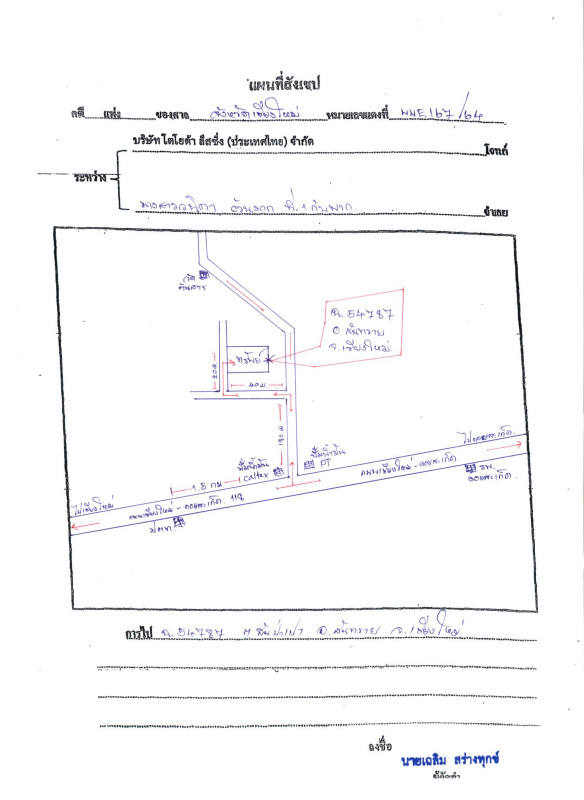 แผนที่สังเขป
คดี แห่ง ของศาล จังหวัดเชียงใหม่ หมายเลขแดงที่ ผบE.167/64
บริษัท โตโยต้า ลีสซิ่ง (ประเทศไทย) จำกัด โจทก์
ระหว่าง
นางสาววนิดา ที่ 1 กับพวก จำเลย
วัด
สันทราย
ฉ. 54787
อ สันทราย
จ. เชียงใหม่
ทรัพย์
20 ม
40 ม.
190 ม
ปั๊มน้ำมัน
PT
ไปดอยสะเก็ด
ถนนเชียงใหม่ - ดอยสะเก็ด
รพ.
ดอยสะเก็ด
ปั๊มน้ำมัน
caltex
1.5 กม
ไปเชียงใหม่
ถนนเชียงใหม่ - ดอยสะเก็ด 118
ปตท.
การไป ฉ. 54787 ต สันป่าเปา อ. สันทราย จ. เชียงใหม่
ลงชื่อ
นายเฉลิม สร่างทุกข์